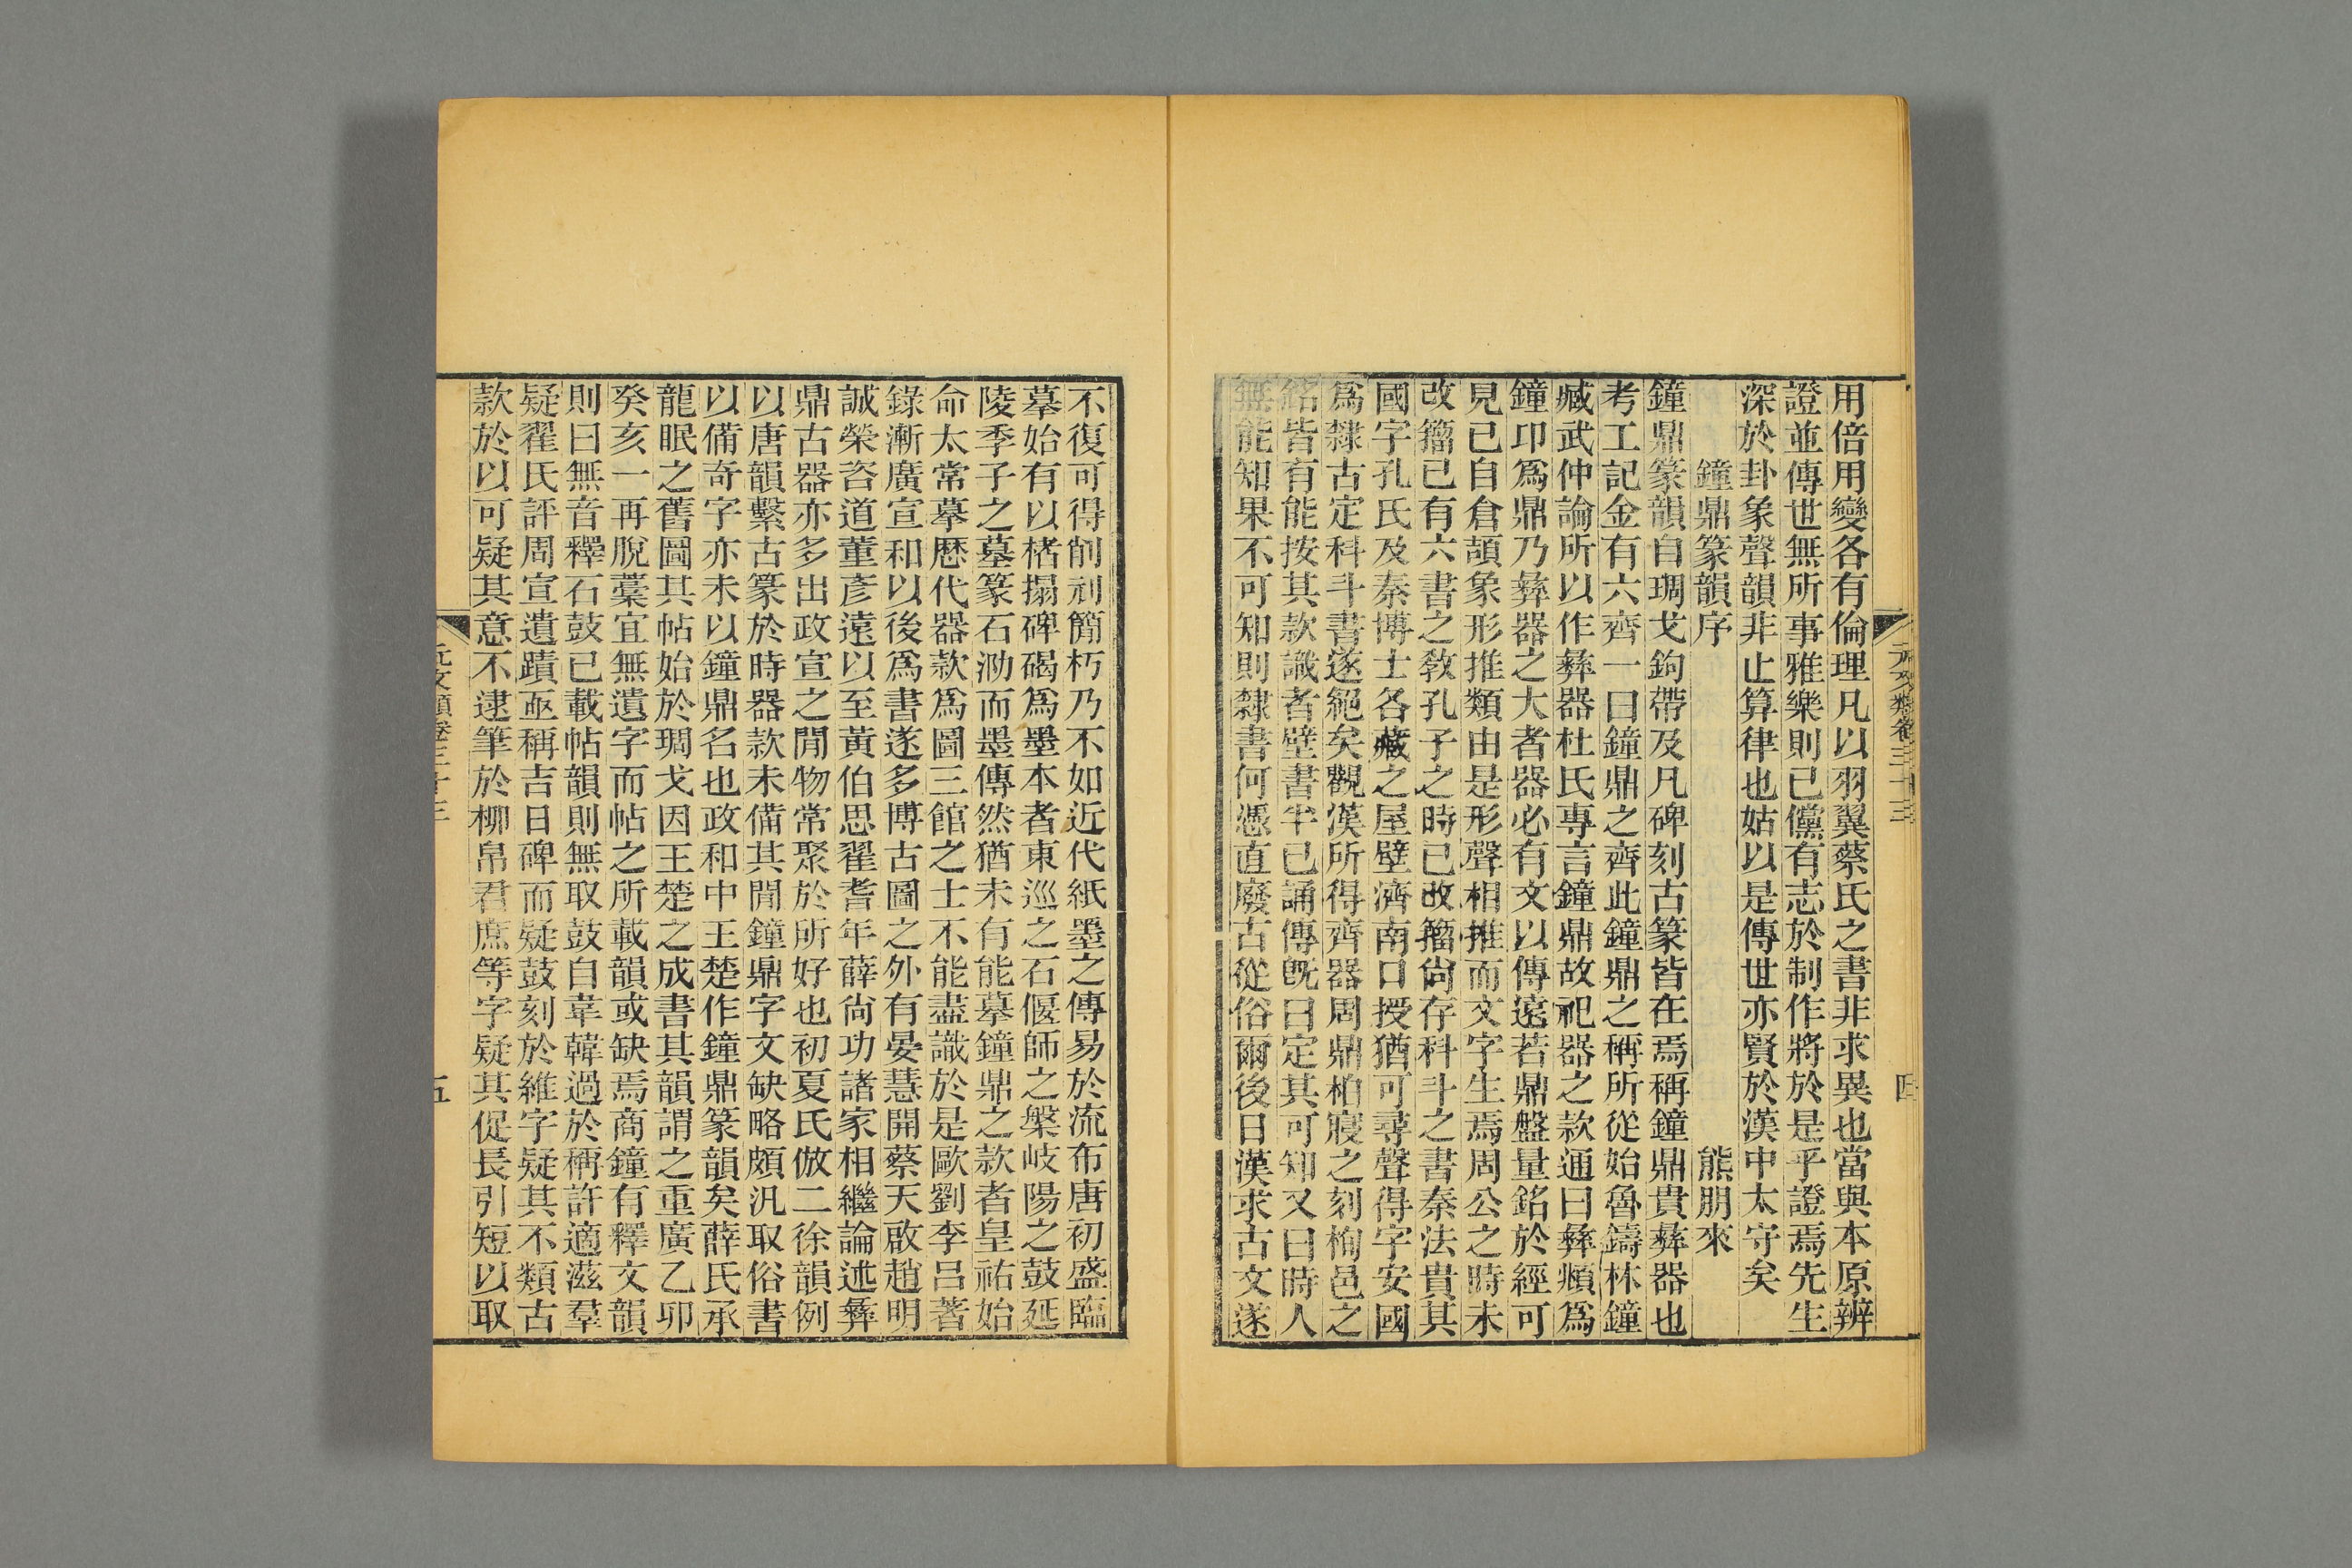 元文類卷三十三
四
用倍用變各有倫理凡以羽翼蔡氏之書非求異也當與本原辨
證並傳世無所事雅樂則已儻有志於制作將於是乎證焉先生
深於卦象聲韻非止算律也姑以是傳世亦賢於漢中太守矣
鐘鼎篆韻序
熊朋來
鐘鼎篆韻自琱戈鉤帶及凡碑刻古篆皆在焉稱鐘鼎貴彝器也
考工記金有六齊一曰鐘鼎之齊此鐘鼎之稱所從始魯鑄林鐘
臧武仲論所以作彝器杜氏專言鐘鼎故祀器之款通曰彝頪爲
鐘卬爲鼎乃彝器之大者器必有文以傳遠若鼎盤量銘於經可
見已自倉頡象形推類由是形聲相推而文字生焉周公之時未
改籀已有六書之敎孔子之時已改籀尙存科斗之書秦法貴其
國字孔氏及秦博士各藏之屋壁濟南口授猶可尋聲得字安國
爲隸古定科斗書遂絕矣觀漢所得齊器周鼎柏寢之刻栒邑之
銘皆有能按其款識者壁書牢已誦傳旣曰定其可知又曰時人
無能知果不可知則隸書何憑直廢古從俗爾後日漢求古文遂
不復可得削刹簡朽乃不如近代紙墨之傳易於流布唐初盛臨
摹始有以楮搨碑碣爲墨本者東巡之石偃師之槃岐陽之鼓延
陵季子之墓篆石泐而墨傳然猶未有能摹鐘鼎之款者皇祐始
命太常摹歷代器款爲圖三館之士不能盡識於是歐劉李呂著
錄漸廣宣和以後爲書遂多博古圖之外有晏慧開蔡天啟趙明
誠榮咨道董彥遠以至黃伯思翟耆年薛尙功諸家相繼論述彝
鼎古器亦多出政宣之閒物常聚於所好也初夏氏倣二徐韻例
以唐韻繫古篆於時器款未備其閒鐘鼎字文缺略頗汎取俗書
以備奇字亦未以鐘鼎名也政和中王楚作鐘鼎篆韻矣薛氏承
龍眠之舊圖其帖始於琱戈因王楚之成書其韻謂之重廣乙卯
癸亥一再脫稾宜無遺字而帖之所載韻或缺焉商鐘有釋文韻
則曰無音釋石鼓已載帖韻則無取鼓自韋韓過於稱許適滋羣
疑翟氏評周宣遺蹟亟稱吉日碑而疑鼓刻於維字疑其不類古
款於以可疑其意不逮筆於柳帛君庶等字疑其促長引短以取
元文類卷三十三
五